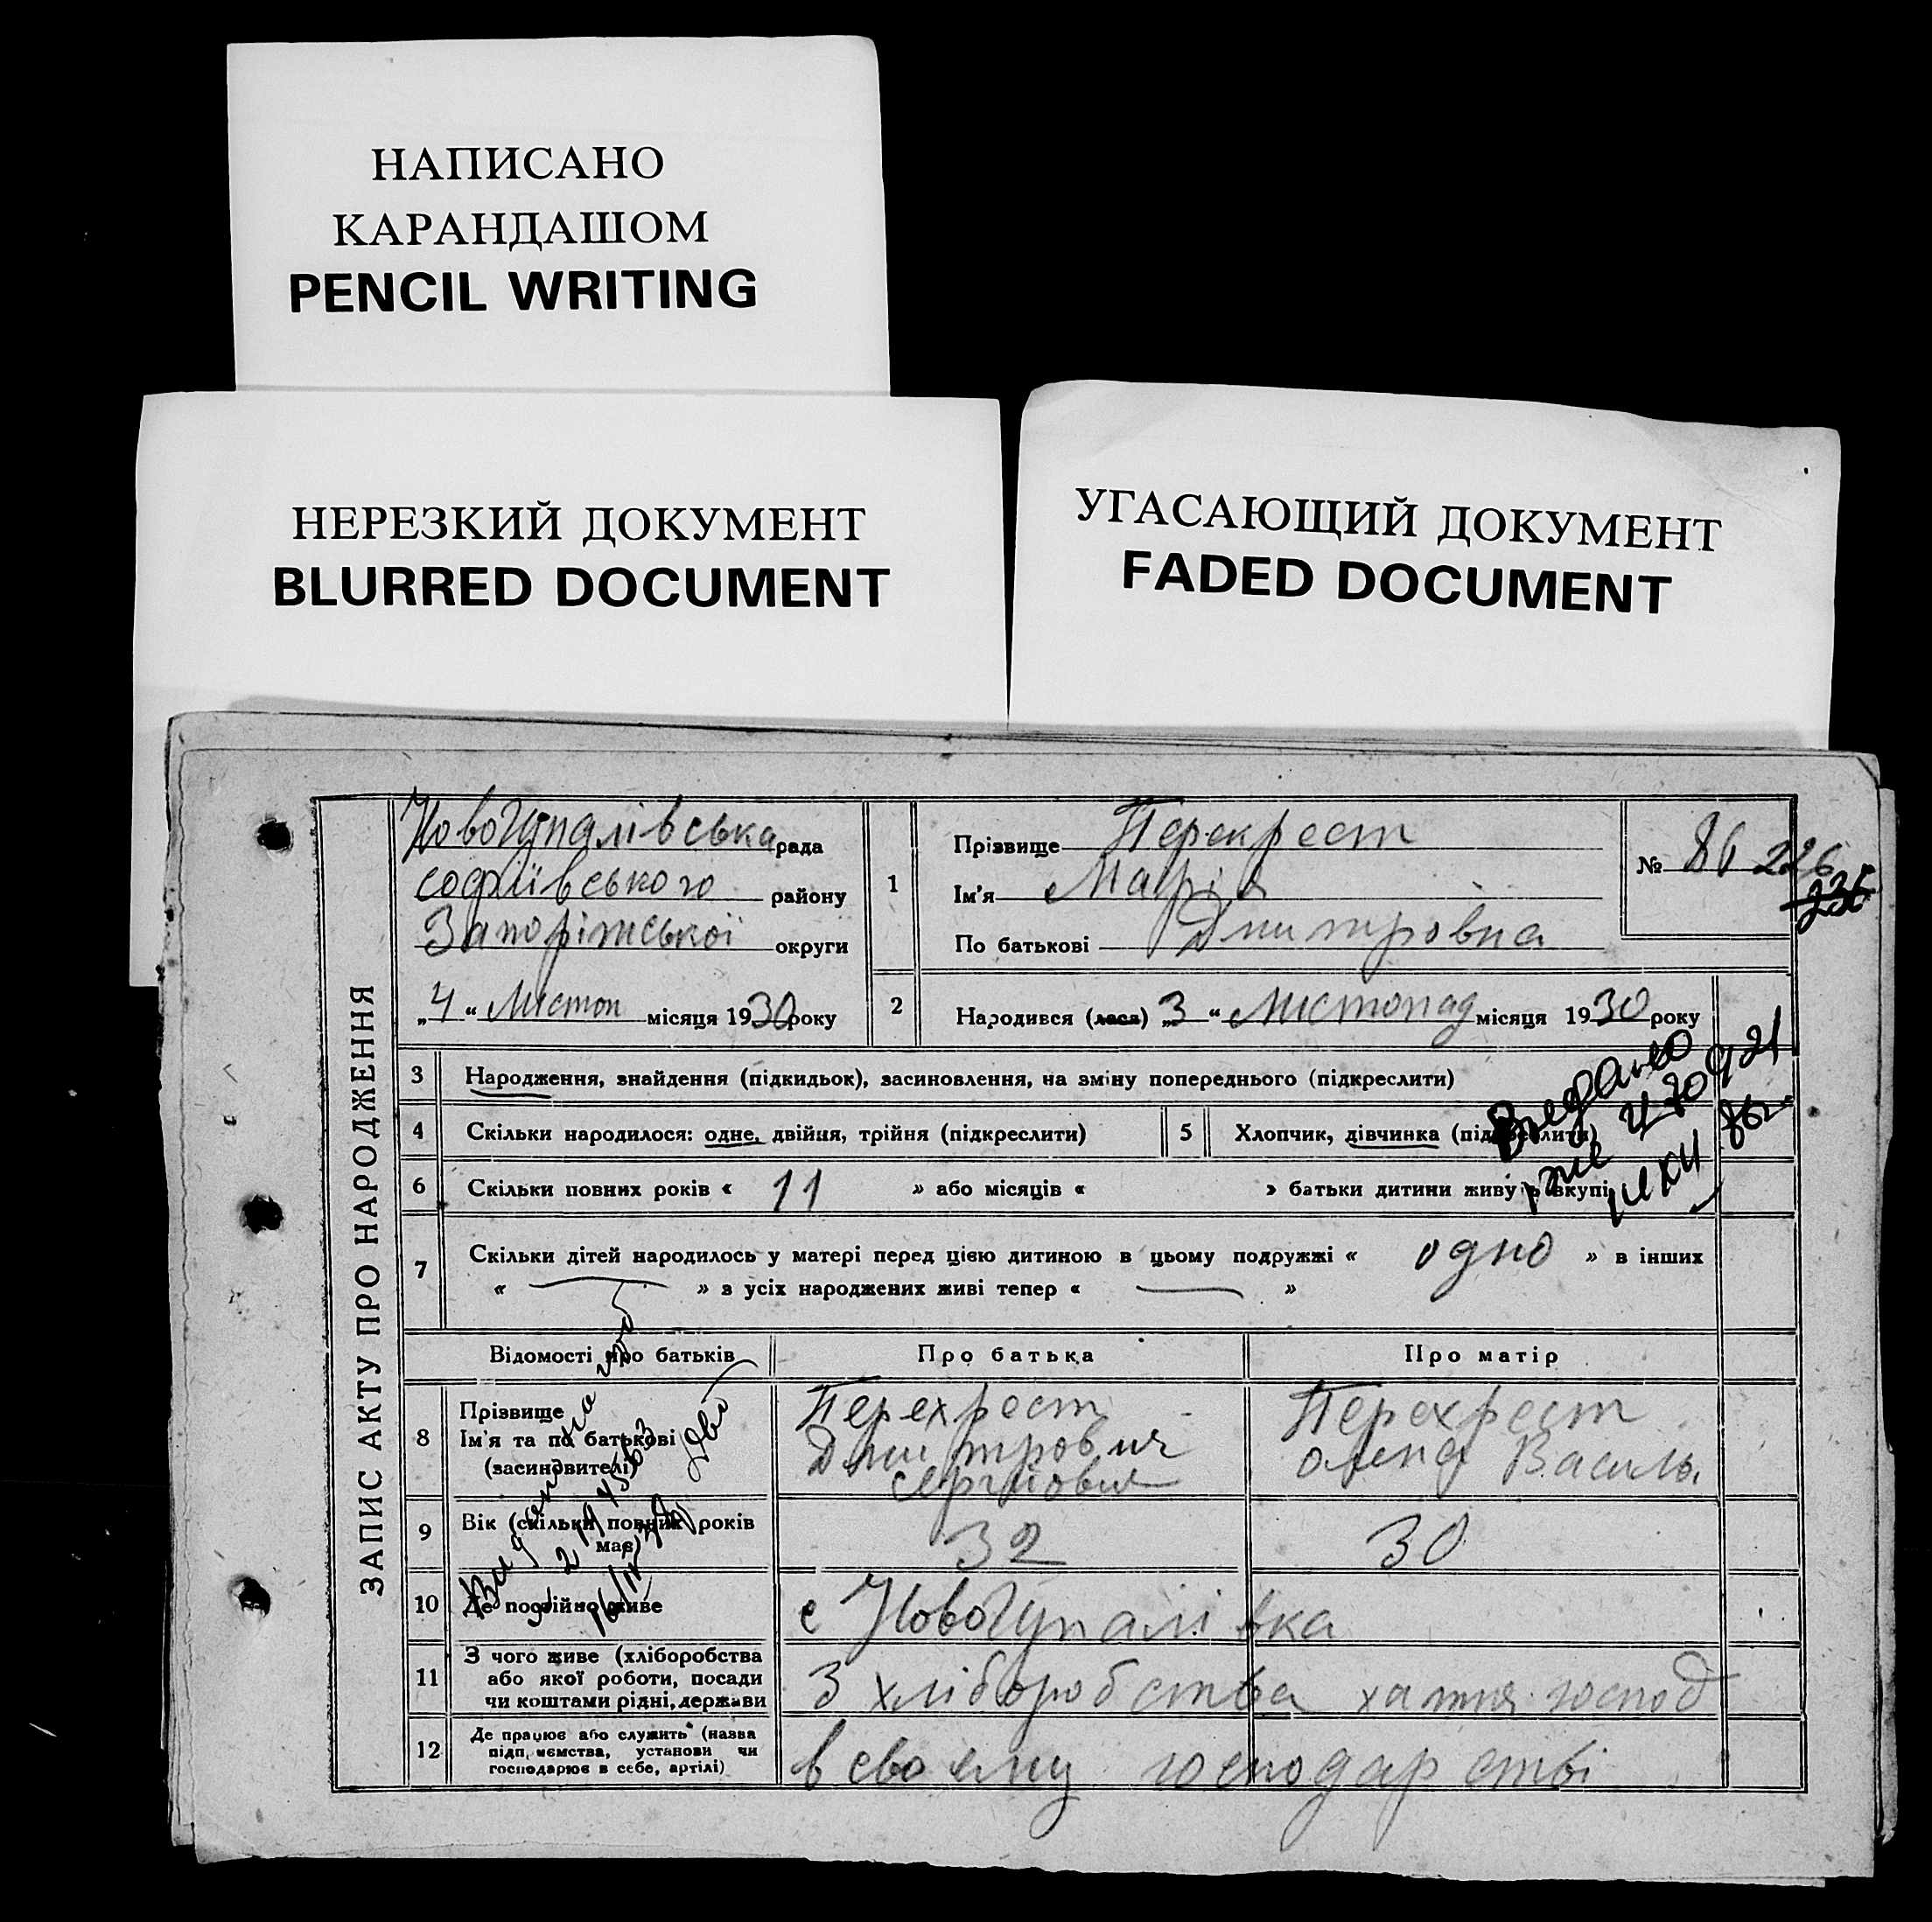 НАПИСАНО
КАРАНДАШОМ
PENCIL WRITING
НЕРЕЗКИЙ ДОКУМЕНТ
BLURRED DOCUMENT
УГАСАЮЩИЙ ДОКУМЕНТ
FADED DOCUMENT
ЗАПИС АКТУ ПРО НАРОДЖЕННЯ
НовоГупалівська рада
софіївського району
Запоріжської округи
„4“ Листоп місяця 1930 року
1
Прізвище Перекрест
Ім'я Марія
По батькові Дмитровна
№ 86 226
2
Народився (лася) „3“ Листопад місяця 1930 року
3 Народження, знайдення (підкидьок), засиновлення, на зміну попереднього (підкреслити)
4 Скільки народилося: одне, двійня, трійня (підкреслити)
5 Хлопчик, дівчинка (підкреслити)
6 Скільки повних років « 11 » або місяців « » батьки дитини живуть вкупі
7 Скільки дітей народилось у матері перед цією дитиною в цьому подружжі « одно » в інших
« — » з усіх народжених живі тепер « — »
Відомості про батьків Про батька Про матір
8 Прізвище
Ім'я та по батькові
(засиновителі)
Перехрест
Дмитров ич
сергійович
Перехрест
олена Василь.
9 Вік (скільки повних років
має)
32
30
10 Де постійно живе
с НовоГупалівка
11 З чого живе (хліборобства
або якої роботи, посади
чи коштами рідні, держави
З хліборобства хатня господ
12 Де працює або служить (назва
підприємства, установи чи
господарює в себе, артілі)
в своєму господарстві